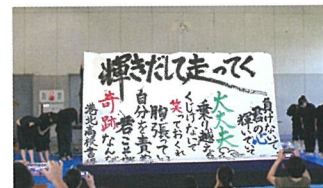 輝きだして走ってく
負けないで
君の心
輝いていて
大丈夫
乗り越える
くじけないで
笑っておくれ
胸張って
自分を責め
君こそ
奇跡なんだ
港北高校書